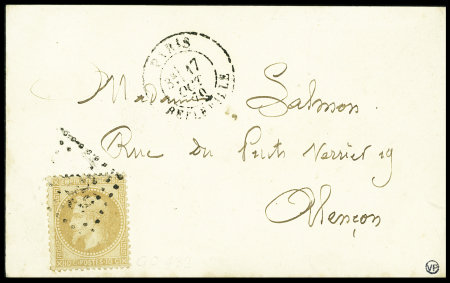 PARIS
17
OCT
BELLEVILLE
Madame Salmon
Rue Du Puits Verrier 19
Alençon
VF